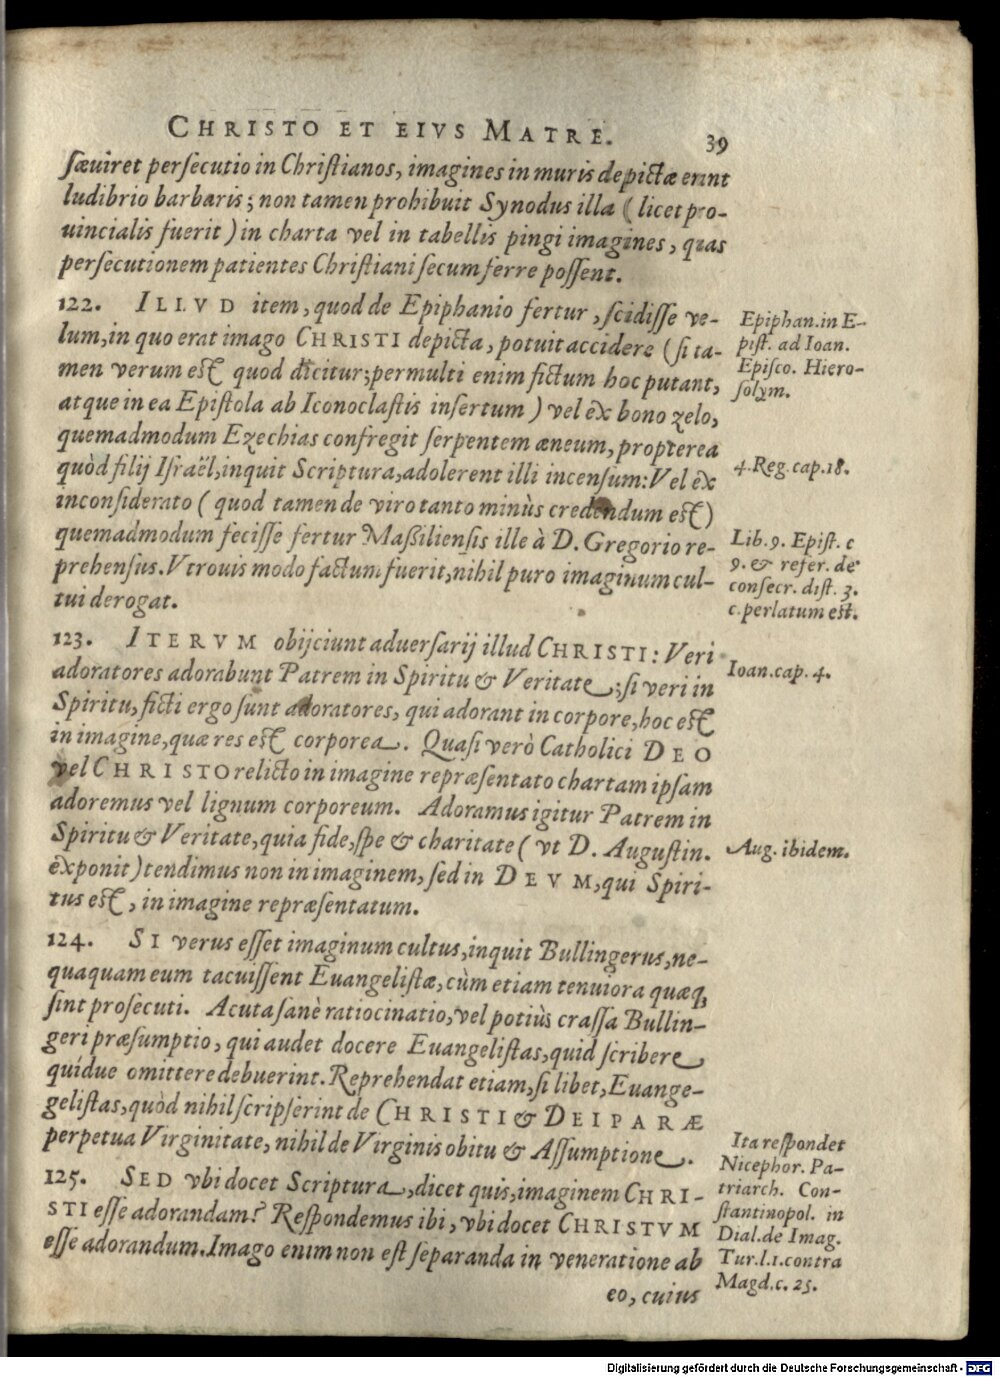 CHRISTO ET EIVS MATRE. 39
sæuiret persecutio in Christianos, imagines in muris depictæ erint
ludibrio barbaris; non tamen prohibuit Synodus illa (licet pro-
uincialis fuerit) in charta vel in tabellis pingi imagines, quas
persecutionem patientes Christiani secum ferre possent.
122. ILLVD item, quod de Epiphanio fertur, scidisse ve-
lum, in quo erat imago CHRISTI depicta, potuit accidere (si ta-
men verum est quod dicitur; permulti enim fictum hoc putant,
atque in ea Epistola ab Iconoclastis insertum) vel ex bono zelo,
quemadmodum Ezechias confregit serpentem æneum, propterea
quòd filij Israël, inquit Scriptura, adolerent illi incensum: Vel ex
inconsiderato (quod tamen de viro tanto minùs credendum est)
quemadmodum fecisse fertur Maßiliensis ille à D. Gregorio re-
prehensus. Vtrouis modo factum fuerit, nihil puro imaginum cul-
tui derogat.
Epiphan. in E-
pist. ad Ioan.
Episco. Hiero-
solym.
4. Reg. cap. 18.
Lib. 9. Epist. c
9. & refer. de
consecr. dist. 3.
c. perlatum est.
123. ITERVM obijciunt aduersarij illud CHRISTI: Veri
adoratores adorabunt Patrem in Spiritu & Veritate; si veri in
Spiritu, ficti ergo sunt adoratores, qui adorant in corpore, hoc est
in imagine, quæ res est corporea. Quasi verò Catholici DEO
vel CHRISTO relicto in imagine repræsentato chartam ipsam
adoremus vel lignum corporeum. Adoramus igitur Patrem in
Spiritu & Veritate, quia fide, spe & charitate (vt D. Augustin.
exponit) tendimus non in imaginem, sed in DEVM, qui Spiri-
tus est, in imagine repræsentatum.
Ioan. cap. 4.
Aug. ibidem.
124. SI verus esset imaginum cultus, inquit Bullingerus, ne-
quaquam eum tacuissent Euangelistæ, cùm etiam tenuiora quæq;
sint prosecuti. Acuta sanè ratiocinatio, vel potiùs crassa Bullin-
geri præsumptio, qui audet docere Euangelistas, quid scribere
quidue omittere debuerint. Reprehendat etiam, si libet, Euange-
gelistas, quòd nihil scripserint de CHRISTI & DEIPARÆ
perpetua Virginitate, nihil de Virginis obitu & Assumptione.
125. SED vbi docet Scriptura, dicet quis, imaginem CHRI-
STI esse adorandam? Respondemus ibi, vbi docet CHRISTVM
esse adorandum. Imago enim non est separanda in veneratione ab
eo, cuius
Ita respondet
Nicephor. Pa-
triarch. Con-
stantinopol. in
Dial. de Imag.
Tur. l. 1. contra
Magd. c. 25.
Digitalisierung gefördert durch die Deutsche Forschungsgemeinschaft - DFG